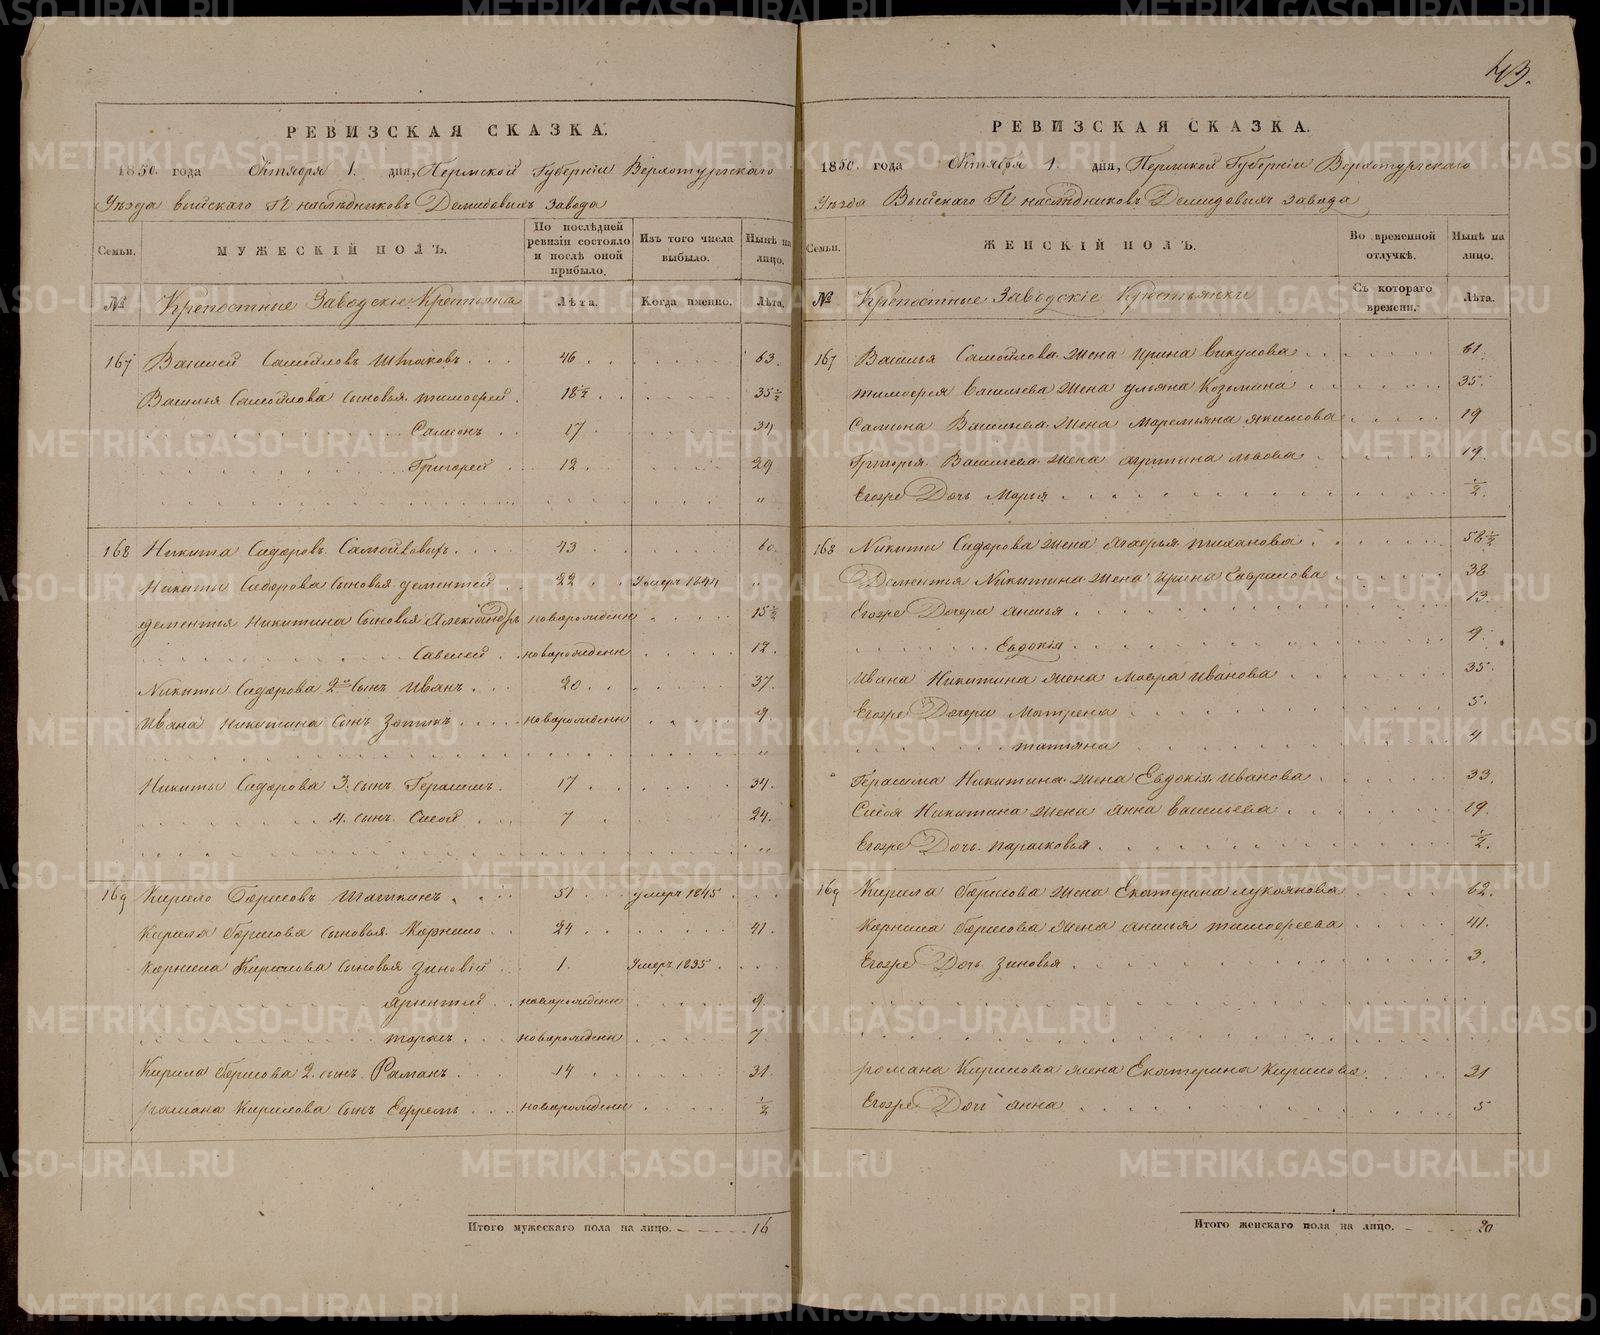 43.
РЕВИЗСКАЯ СКАЗКА.
1850. года Октября 1. дня, Пермской Губерніи Верхотурскаго
Уѣзда Выйскаго Г.г. наслѣдниковъ Демидовыхъ завода
Семьи.
МУЖЕСКІЙ ПОЛЪ.
По послѣдней ревизіи состояло и послѣ оной прибыло.
Изъ того числа выбыло.
Нынѣ на лицо.
№
Крепостные Заводскіе Крестьяне
Лѣта.
Когда именно.
Лѣта.
167 Василей Самойловъ 46 63.
Василья Самойлова сыновья тимофей 18½ 35½
Самсонъ 17 34
Григорей 12. 29
"
168 Никита Сидоровъ Самойловыхъ 43 60.
Никиты Сидорова сыновья дементей 22 Умеръ 1844 "
дементья Никитина сыновья Александръ новорожденн 15½
Савелей новорожденн 12.
Никиты Сидорова 2й сынъ Иванъ 20 37
Ивана Никитина сынъ Зотикъ новорожденн 9
"
Никиты Сидорова 3. сынъ Герасимъ. 17 34.
4. сынъ Сысой 7 24.
"
169 Кирило Борисовъ 51 умеръ 1845
Кирила Борисова сыновья Корнило 24 41.
Корнила Кирилова сыновья зиновій 1. Умеръ 1835
новорожденн 9.
тарасъ новорожденн 7
Кирила Борисова 2. сынъ Романъ 14 31.
романа Кирилова сынъ Ефремъ новорожденн ½
Итого мужескаго пола на лицо. 16
РЕВИЗСКАЯ СКАЗКА.
1850. года Октября 1. дня, Пермской Губерніи Верхотурскаго
Уѣзда Выйскаго Г.г. наслѣдниковъ Демидовыхъ завода
Семьи.
ЖЕНСКІЙ ПОЛЪ.
Во временной отлучкѣ.
Нынѣ на лицо.
№
Крепостные Заводскіе Крестьянки
Съ котораго времени.
Лѣта.
167 Василья Самойлова жена ирина викулова 61
тимофея васильева жена ульяна Козьмина 35.
Самсона Васильева жена Маремьяна якимова 19
Григорья Васильева жена львова 19.
Егоже Дочь Марья ½.
168 Никиты Сидорова жена 58½
Дементья Никитина жена ирина Гаврилова 38
Егоже Дочери анисья 13.
Евдокія 9.
Ивана Никитина жена мавра иванова 35.
Егоже Дочери Матрена 5.
татьяна 4
Герасима Никитина жена Евдокія иванова 33.
Сысоя Никитина жена анна васильева 19.
Егоже Дочь парасковья ½.
169 Кирила Борисова жена Екатерина лукоянова 62.
Корнила Борисова жена анисья тимофеева 41.
Егоже Дочь зиновья 3.
романа Кирилова жена Екатерина Кирилова 31
Егоже Дочь анна 5
Итого женскаго пола на лицо. 20
METRIKI.GASO-URAL.RU